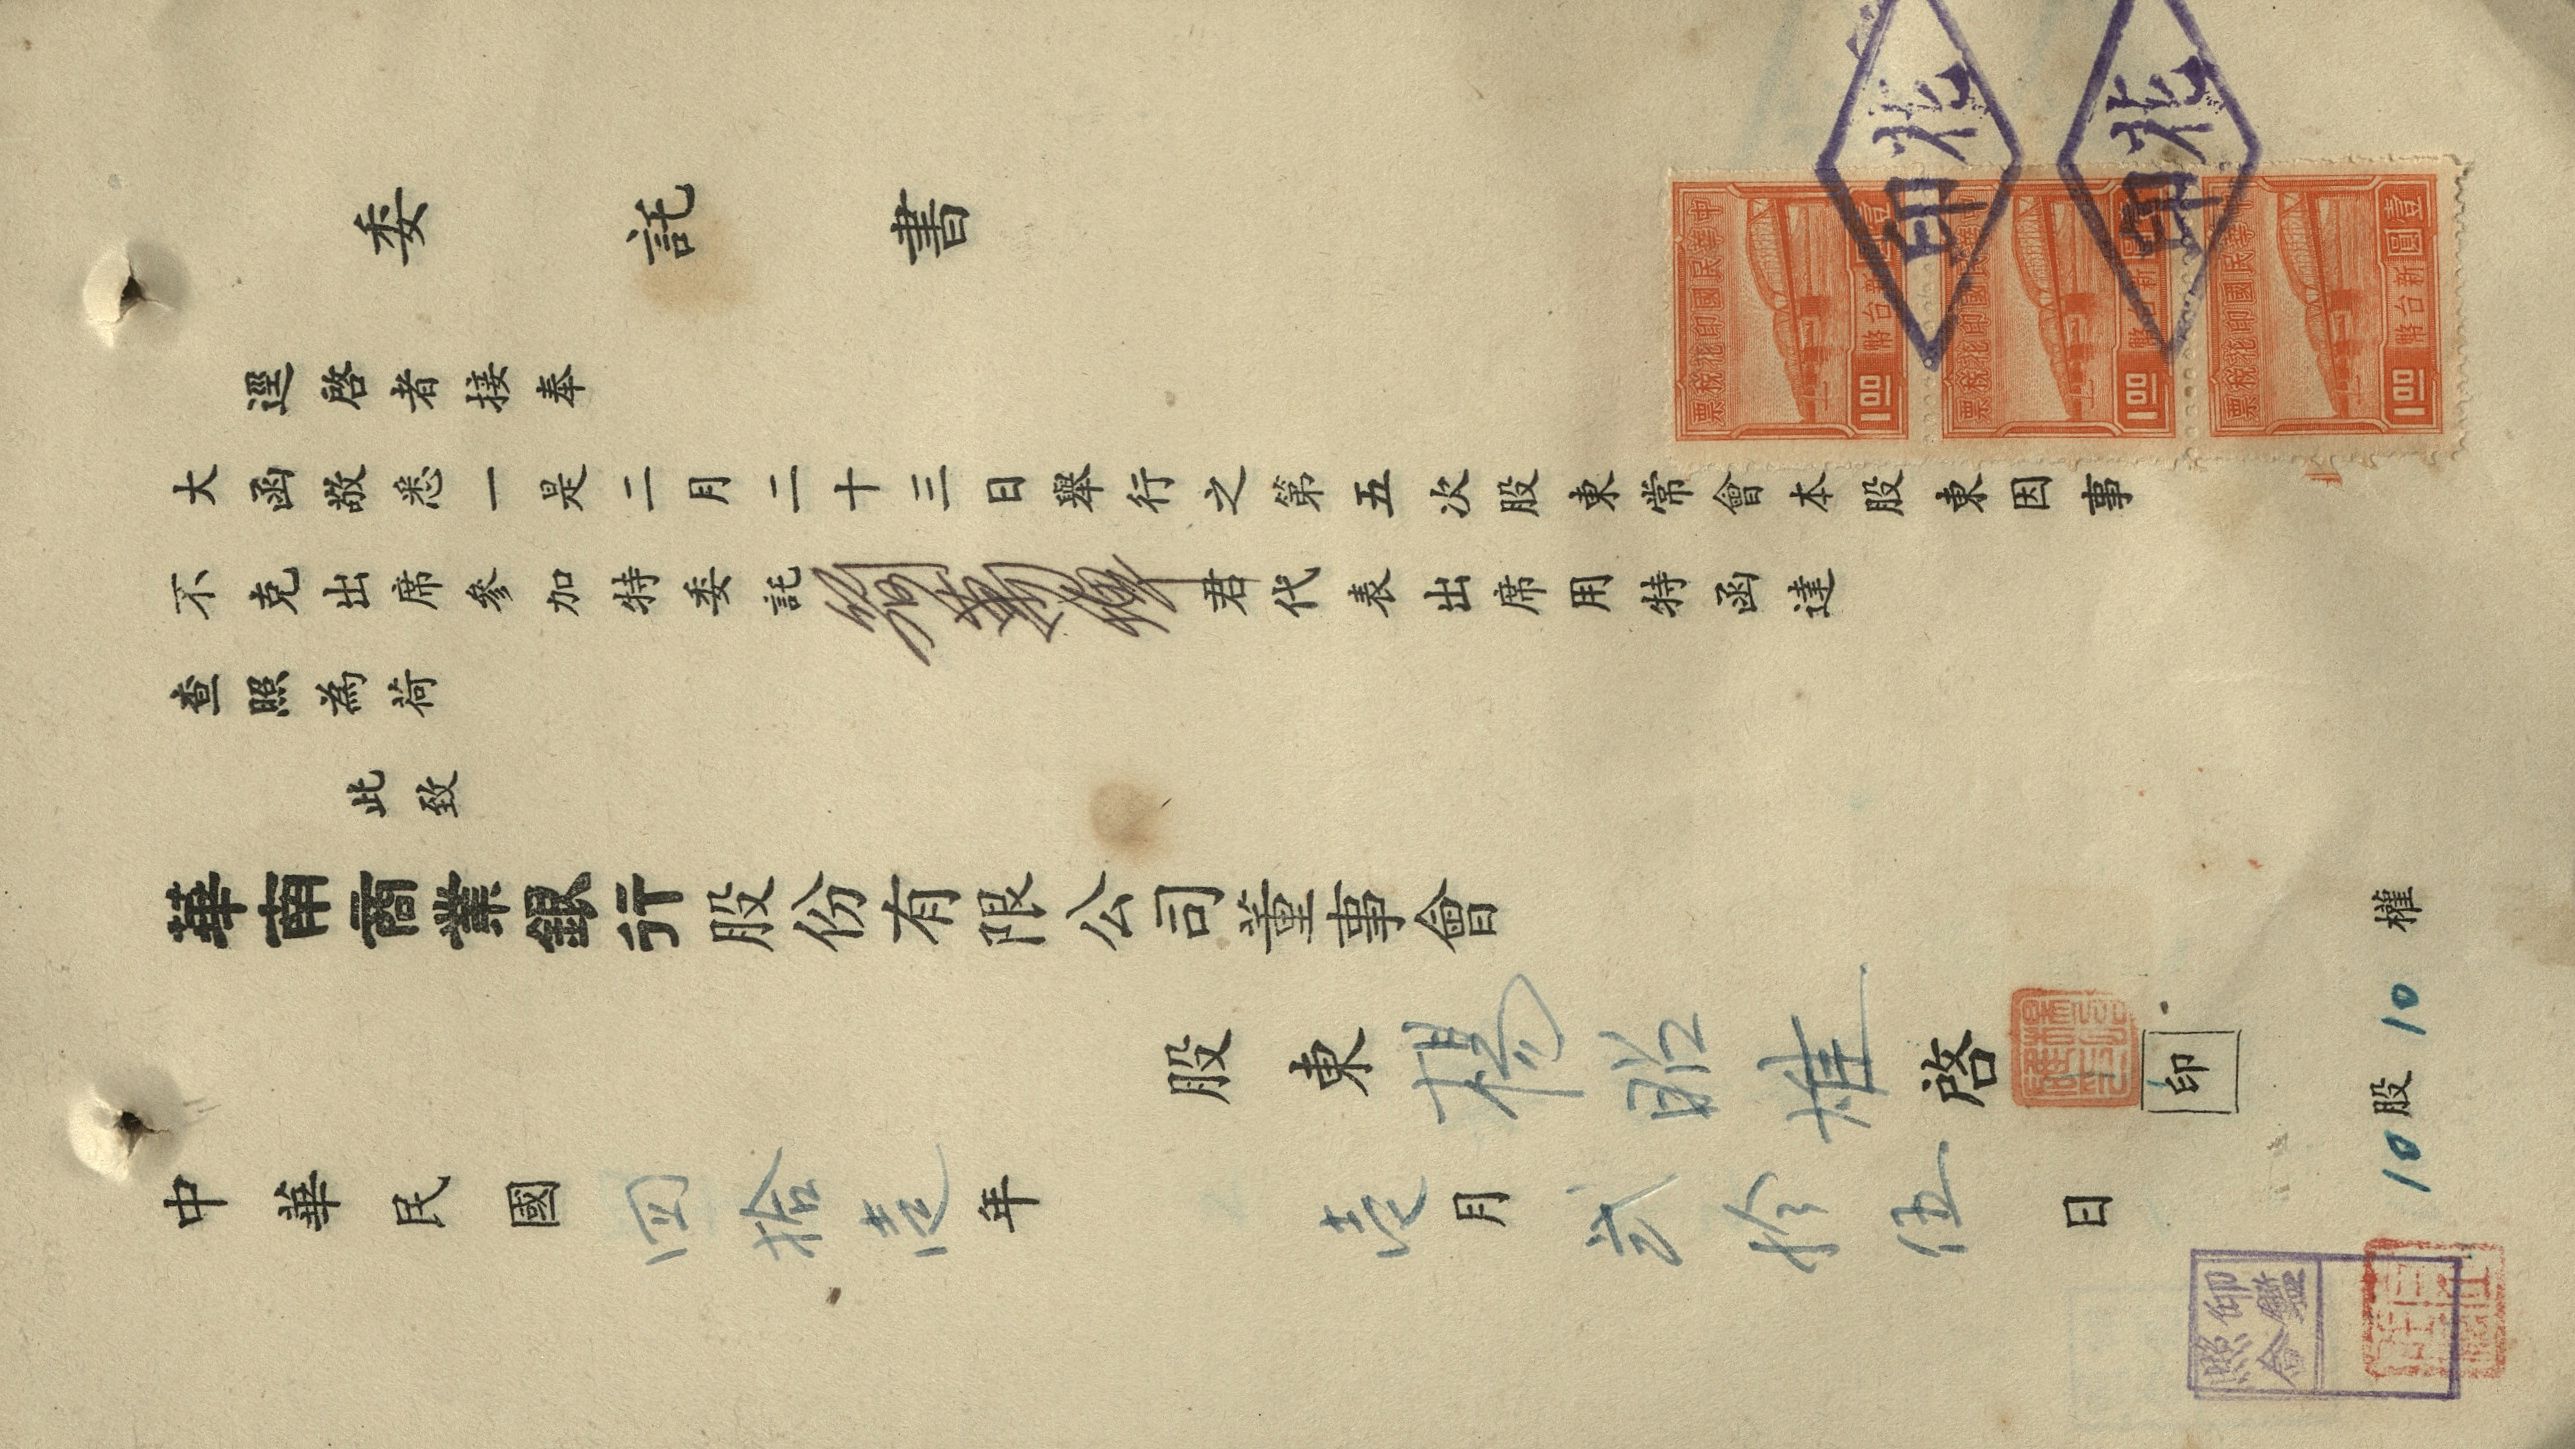 委託書
逕啓者接奉
大函敬悉一是二月二十三日舉行之第五次股東常會本股東因事
不克出席參加特委託君代表出席用特函達
查照為荷
此致
華南商業銀行股份有限公司董事會
股東楊昭雄啓 印
中華民國四拾壱年壱月弍拾伍日
10股10權
中華民國印花稅票
壹圓新台幣
1.00
中華民國印花稅票
壹圓新台幣
1.00
中華民國印花稅票
壹圓新台幣
1.00
印花
印花
印鑑
照合